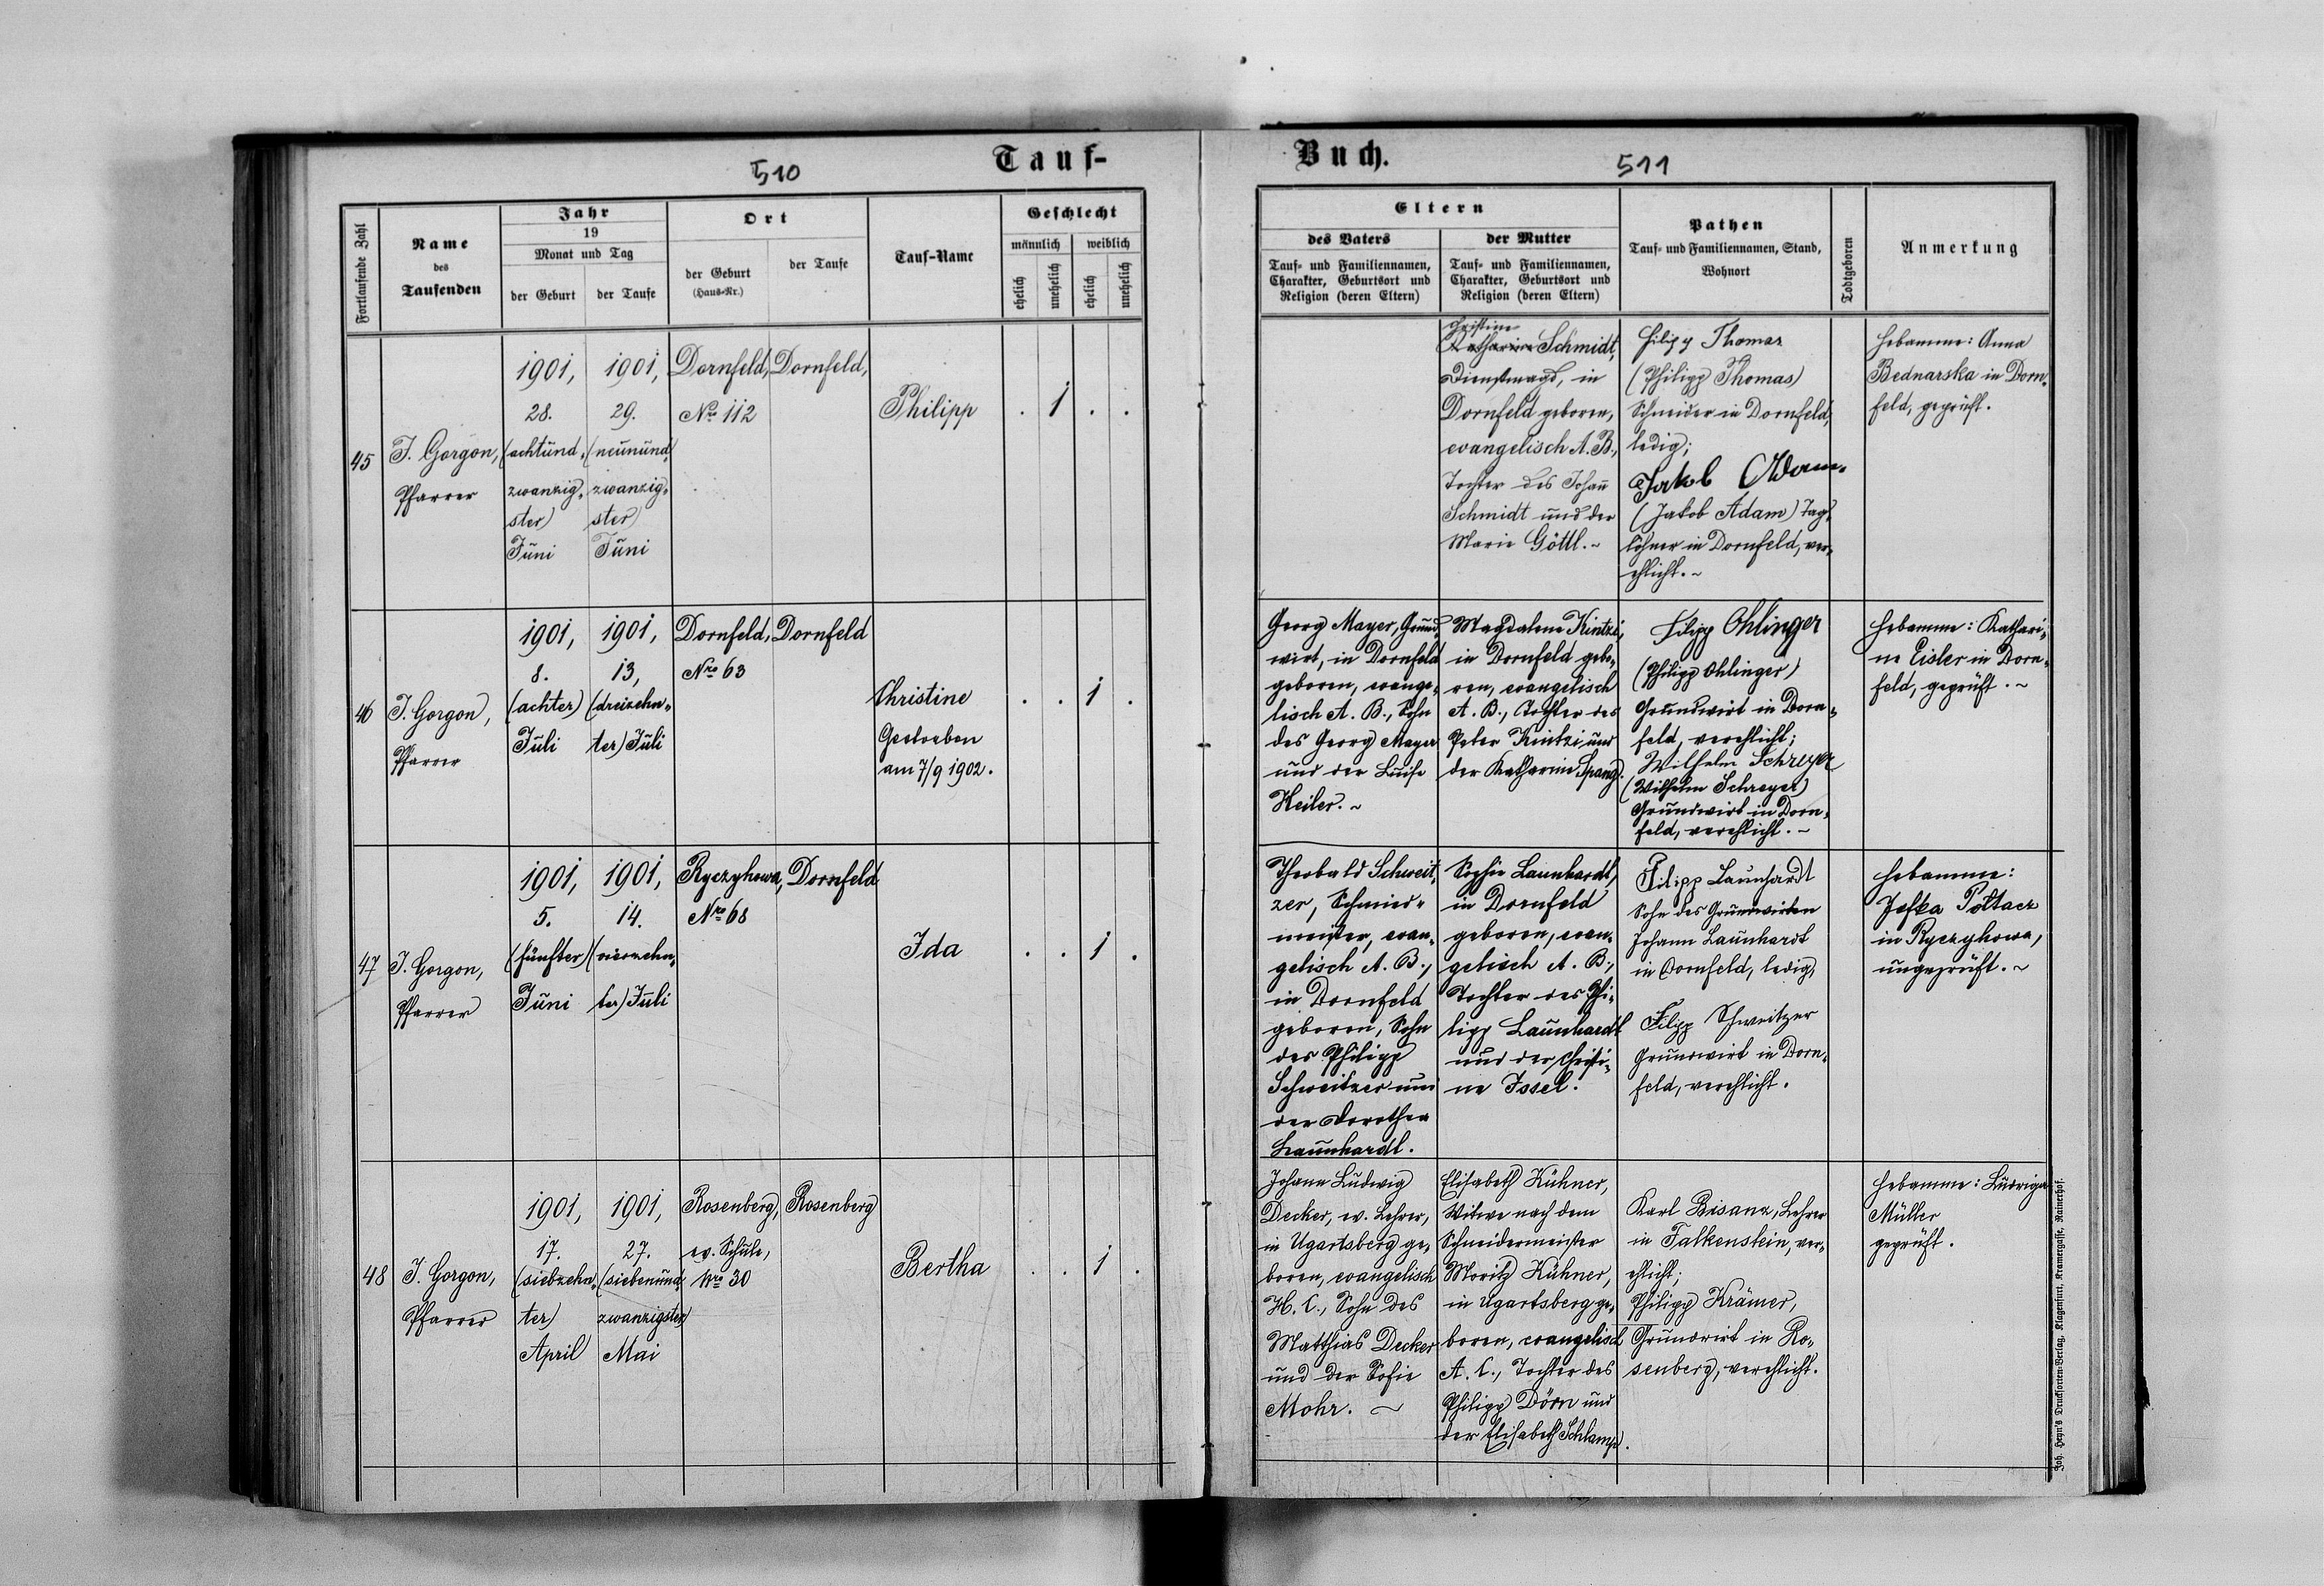 510
Tauf-
Fortlaufende Zahl
Name
des
Taufenden
Jahr
19
Monat und Tag
der Geburt
der Taufe
Ort
der Geburt
(Haus-Nr.)
der Taufe
Tauf-Name
Geschlecht
männlich
weiblich
ehelich
unehelich
ehelich
unehelich
45
J. Gorgon,
Pfarrer
1901,
28.
(achtund-
zwanzig-
ster)
Juni
1901,
29.
(neunund-
zwanzig-
ster)
Juni
Dornfeld,
No 112
Dornfeld,
Philipp
. 1 . .
46
J. Gorgon,
Pfarrer
1901,
8.
(achter)
Juli
1901,
13,
(dreizehn-
ter) Juli
Dornfeld,
Nro 63
Dornfeld
Christine
Gestorben
am 7/9 1902.
. . 1 .
47
J. Gorgon,
Pfarrer
1901,
5.
(fünfter)
Juni
1901,
14.
(vierzehn-
ter) Juli
Ryczyhowa,
Nro 68
Dornfeld
Ida
. . 1 .
48
J. Gorgon,
Pfarrer
1901,
17.
(siebzehn-
ter)
April
1901,
27.
(siebenund-
zwanzigster)
Mai
Rosenberg,
ev. Schule,
Nro 30
Rosenberg
Bertha
. . 1 .
Buch.
511
Eltern
des Vaters
Tauf- und Familiennamen,
Charakter, Geburtsort und
Religion (deren Eltern)
der Mutter
Tauf- und Familiennamen,
Charakter, Geburtsort und
Religion (deren Eltern)
Pathen
Tauf- und Familiennamen, Stand,
Wohnort
Todtgeboren
Anmerkung
Christine
Katharine Schmidt,
Dienstmagd, in
Dornfeld geboren,
evangelisch A. B.,
Tochter des Johañ
Schmidt und der
Marie Göttl. ~
Filipp Thomas
(Philipp Thomas)
Schneider in Dornfeld,
ledig;
Jakob Adam
(Jakob Adam) Tag-
löhner in Dornfeld, ver-
ehlicht. ~
Hebamme: Anna
Bednarska in Dorn-
feld, geprüft.
Georg Mayer, Grund-
wirt, in Dornfeld
geboren, evange-
lisch A. B., Sohn
des Georg Mayer
und der Luise
Keiler. ~
Magdalena Kintzi,
in Dornfeld gebo-
ren, evangelisch
A. B., Tochter des
Peter Kintzi und
der Katharine Spang.
Filipp Ohlinger
(Philipp Ohlinger)
Grundwirt in Dorn-
feld, verehlicht;
Wilhelm Schreyer
(Wilhelm Schreyer)
Grundwirt in Dorn-
feld, verehlicht. ~
Hebamme: Kathari-
ne Eisler in Dorn-
feld, geprüft. ~
Theobald Schweit-
zer, Schmied-
meister, evan-
gelisch A. B.,
in Dornfeld
geboren, Sohn
des Philipp
Schweitzer und
der Dorothea
Launhardt.
Sophie Launhardt,
in Dornfeld
geboren, evan-
gelisch A. B.,
Tochter des Phi-
lipp Launhardt
und der Christi-
ne Issel.
Filipp Launhardt
Sohn des Grundwirten
Johann Launhardt
in Dornfeld, ledig,
Filipp Schweitzer
Grundwirt in Dorn-
feld, verehlicht.
Hebamme:
Jefka Półtacz
in Ryczyhowa,
ungeprüft. ~
Johann Ludwig
Decker, ev. Lehrer,
in Ugartsberg ge-
boren, evangelisch
H. C., Sohn des
Matthias Decker
und der Sofie
Mohr. ~
Elisabeth Kühner,
Witwe nach dem
Schneidermeister
Moritz Kühner,
in Ugartsberg ge-
boren, evangelisch
A. C., Tochter des
Philipp Dörn und
der Elisabeth Schlamp.
Karl Bisanz, Lehrer
in Falkenstein, ver-
ehlicht;
Philipp Krämer,
Grundwirt in Ro-
senberg, verehlicht.
Hebamme: Ludwiga
Müller
geprüft.
Joh. Heyn's Drucksorten-Verlag, Klagenfurt, Kramergasse, Rainerhof.